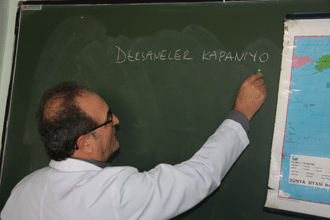 DERSANELER KAPANIYO
DÜNYA SİYASİ HA